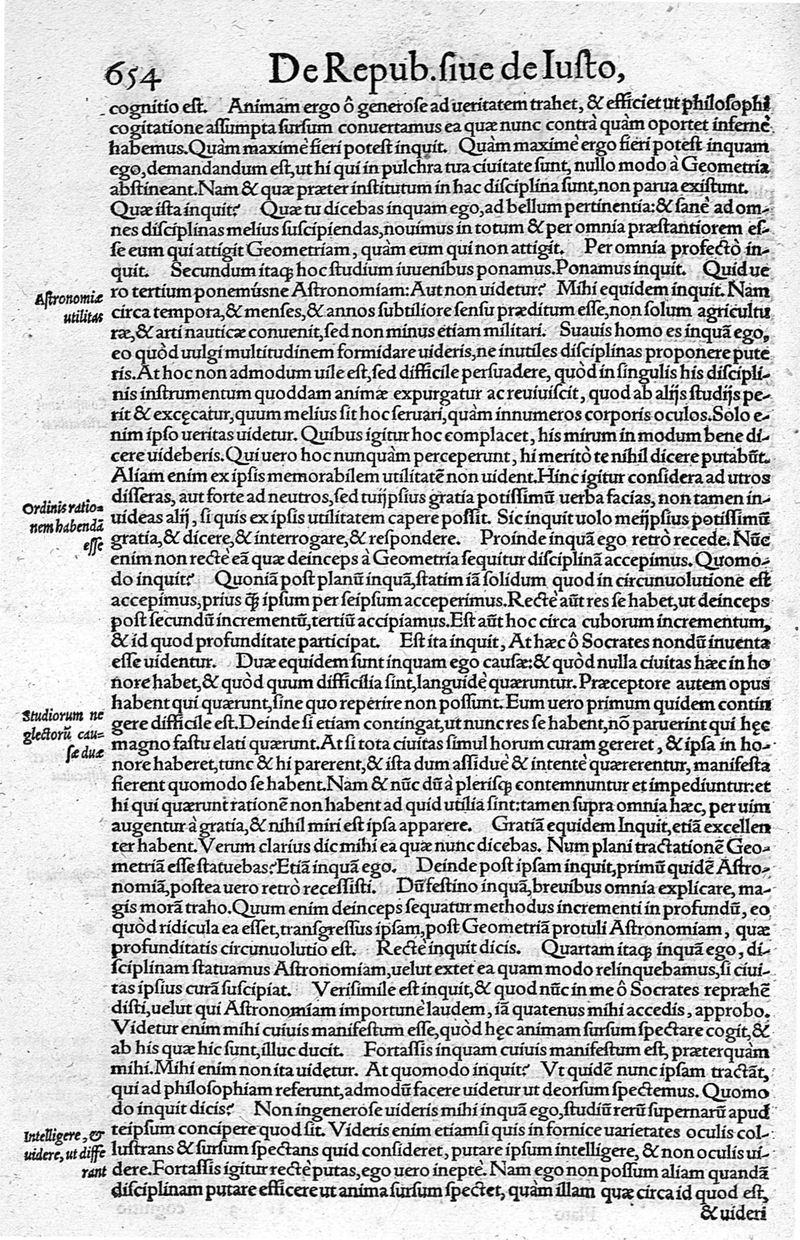 654
De Repub. siue de Iusto,
cognitio est. Animam ergo ô generose ad ueritatem trahet, & efficiet ut philosophi
cogitatione assumpta sursum conuertamus ea quæ nunc contrà quàm oportet infernè
habemus. Quàm maximè fieri potest inquit. Quàm maximè ergo fieri potest inquam
ego, demandandum est, ut hi qui in pulchra tua ciuitate sunt, nullo modo à Geometria
abstineant. Nam & quæ præter institutum in hac disciplina sunt, non parua existunt.
Quæ ista inquit? Quæ tu dicebas inquam ego, ad bellum pertinentia: & sanè ad om-
nes disciplinas melius suscipiendas, nouimus in totum & per omnia præstantiorem es-
se eum qui attigit Geometriam, quàm eum qui non attigit. Per omnia profectò in-
quit. Secundum itaq; hoc studium iuuenibus ponamus. Ponamus inquit. Quid ue
Astronomiæ
utilitas
ro tertium ponemúsne Astronomiam: Aut non uidetur? Mihi equidem inquit. Nam
circa tempora, & menses, & annos subtiliore sensu præditum esse, non solum agricultu
ræ, & arti nauticæ conuenit, sed non minus etiam militari. Suauis homo es inquã ego,
eo quòd uulgi multitudinem formidare uideris, ne inutiles disciplinas proponere pute
ris. At hoc non admodum uile est, sed difficile persuadere, quòd in singulis his discipli-
nis instrumentum quoddam animæ expurgatur ac reuiuiscit, quod ab alijs studijs pe-
rit & excęcatur, quum melius sit hoc seruari, quàm innumeros corporis oculos. Solo e-
nim ipso ueritas uidetur. Quibus igitur hoc complacet, his mirum in modum bene di-
cere uideberis. Qui uero hoc nunquàm perceperunt, hi meritò te nihil dicere putabũt.
Aliam enim ex ipsis memorabilem utilitatẽ non uident. Hinc igitur considera ad utros
Ordinis ratio-
nem habendã
esse
disseras, aut forte ad neutros, sed tuijpsius gratia potissimũ uerba facias, non tamen in-
uideas alij, si quis ex ipsis utilitatem capere possit. Sic inquit uolo meijpsius potissimũ
gratia, & dicere, & interrogare, & respondere. Proinde inquã ego retrò recede. Nũc
enim non rectè eã quæ deinceps à Geometria sequitur disciplinã accepimus. Quomo-
do inquit? Quoniã post planũ inquã, statim iã solidum quod in circunuolutione est
accepimus, prius q̃ ipsum per seipsum acceperimus. Rectè aũt res se habet, ut deinceps
post secundũ incrementũ, tertiũ accipiamus. Est aũt hoc circa cuborum incrementum,
& id quod profunditate participat. Est ita inquit, At hæc ô Socrates nondũ inuenta
esse uidentur. Duæ equidem sunt inquam ego causæ: & quòd nulla ciuitas hæc in ho
nore habet, & quòd quum difficilia sint, languidè quæruntur. Præceptore autem opus
Studiorum ne
glectorũ cau-
sæ duæ
habent qui quærunt, sine quo reperire non possunt. Eum uero primum quidem contin
gere difficile est. Deinde si etiam contingat, ut nunc res se habent, nõ paruerint qui hęc
magno fastu elati quærunt. At si tota ciuitas simul horum curam gereret, & ipsa in ho-
nore haberet, tunc & hi parerent, & ista dum assiduè & intentè quærerentur, manifesta
fierent quomodo se habent. Nam & nũc dũ à plerisq; contemnuntur et impediuntur: et
hi qui quærunt rationẽ non habent ad quid utilia sint: tamen supra omnia hæc, per uim
augentur à gratia, & nihil miri est ipsa apparere. Gratiã equidem Inquit, etiã excellen
ter habent. Verum clarius dic mihi ea quæ nunc dicebas. Num plani tractationẽ Geo-
metriã esse statuebas? Etiã inquã ego. Deinde post ipsam inquit, primũ quidẽ Astro-
nomiã, postea uero retrò recessisti. Dũ festino inquã, breuibus omnia explicare, ma-
gis morã traho. Quum enim deinceps sequatur methodus incrementi in profundũ, eo
quòd ridicula ea esset, transgressus ipsam, post Geometriã protuli Astronomiam, quæ
profunditatis circunuolutio est. Rectè inquit dicis. Quartam itaq; inquã ego, di-
sciplinam statuamus Astronomiam, uelut extet ea quam modo relinquebamus, si ciui-
tas ipsius curã suscipiat. Verisimile est inquit, & quod nũc in me ô Socrates repræhẽ
disti, uelut qui Astronomiam importunè laudem, iã quatenus mihi accedis, approbo.
Videtur enim mihi cuiuis manifestum esse, quòd hęc animam sursum spectare cogit, &
ab his quæ hic sunt, illuc ducit. Fortassis inquam cuiuis manifestum est, præterquàm
mihi. Mihi enim non ita uidetur. At quomodo inquit? Vt quidẽ nunc ipsam tractãt,
qui ad philosophiam referunt, admodũ facere uidetur ut deorsum spectemus. Quomo
do inquit dicis? Non ingenerose uideris mihi inquã ego, studiũ rerũ supernarũ apud
Intelligere, &
uidere, ut diffe
rant
teipsum concipere quod sit. Videris enim etiamsi quis in fornice uarietates oculis col-
lustrans & sursum spectans quid consideret, putare ipsum intelligere, & non oculis ui-
dere. Fortassis igitur rectè putas, ego uero ineptè. Nam ego non possum aliam quandã
disciplinam putare efficere ut anima sursum spectet, quàm illam quæ circa id quod est,
& uideri